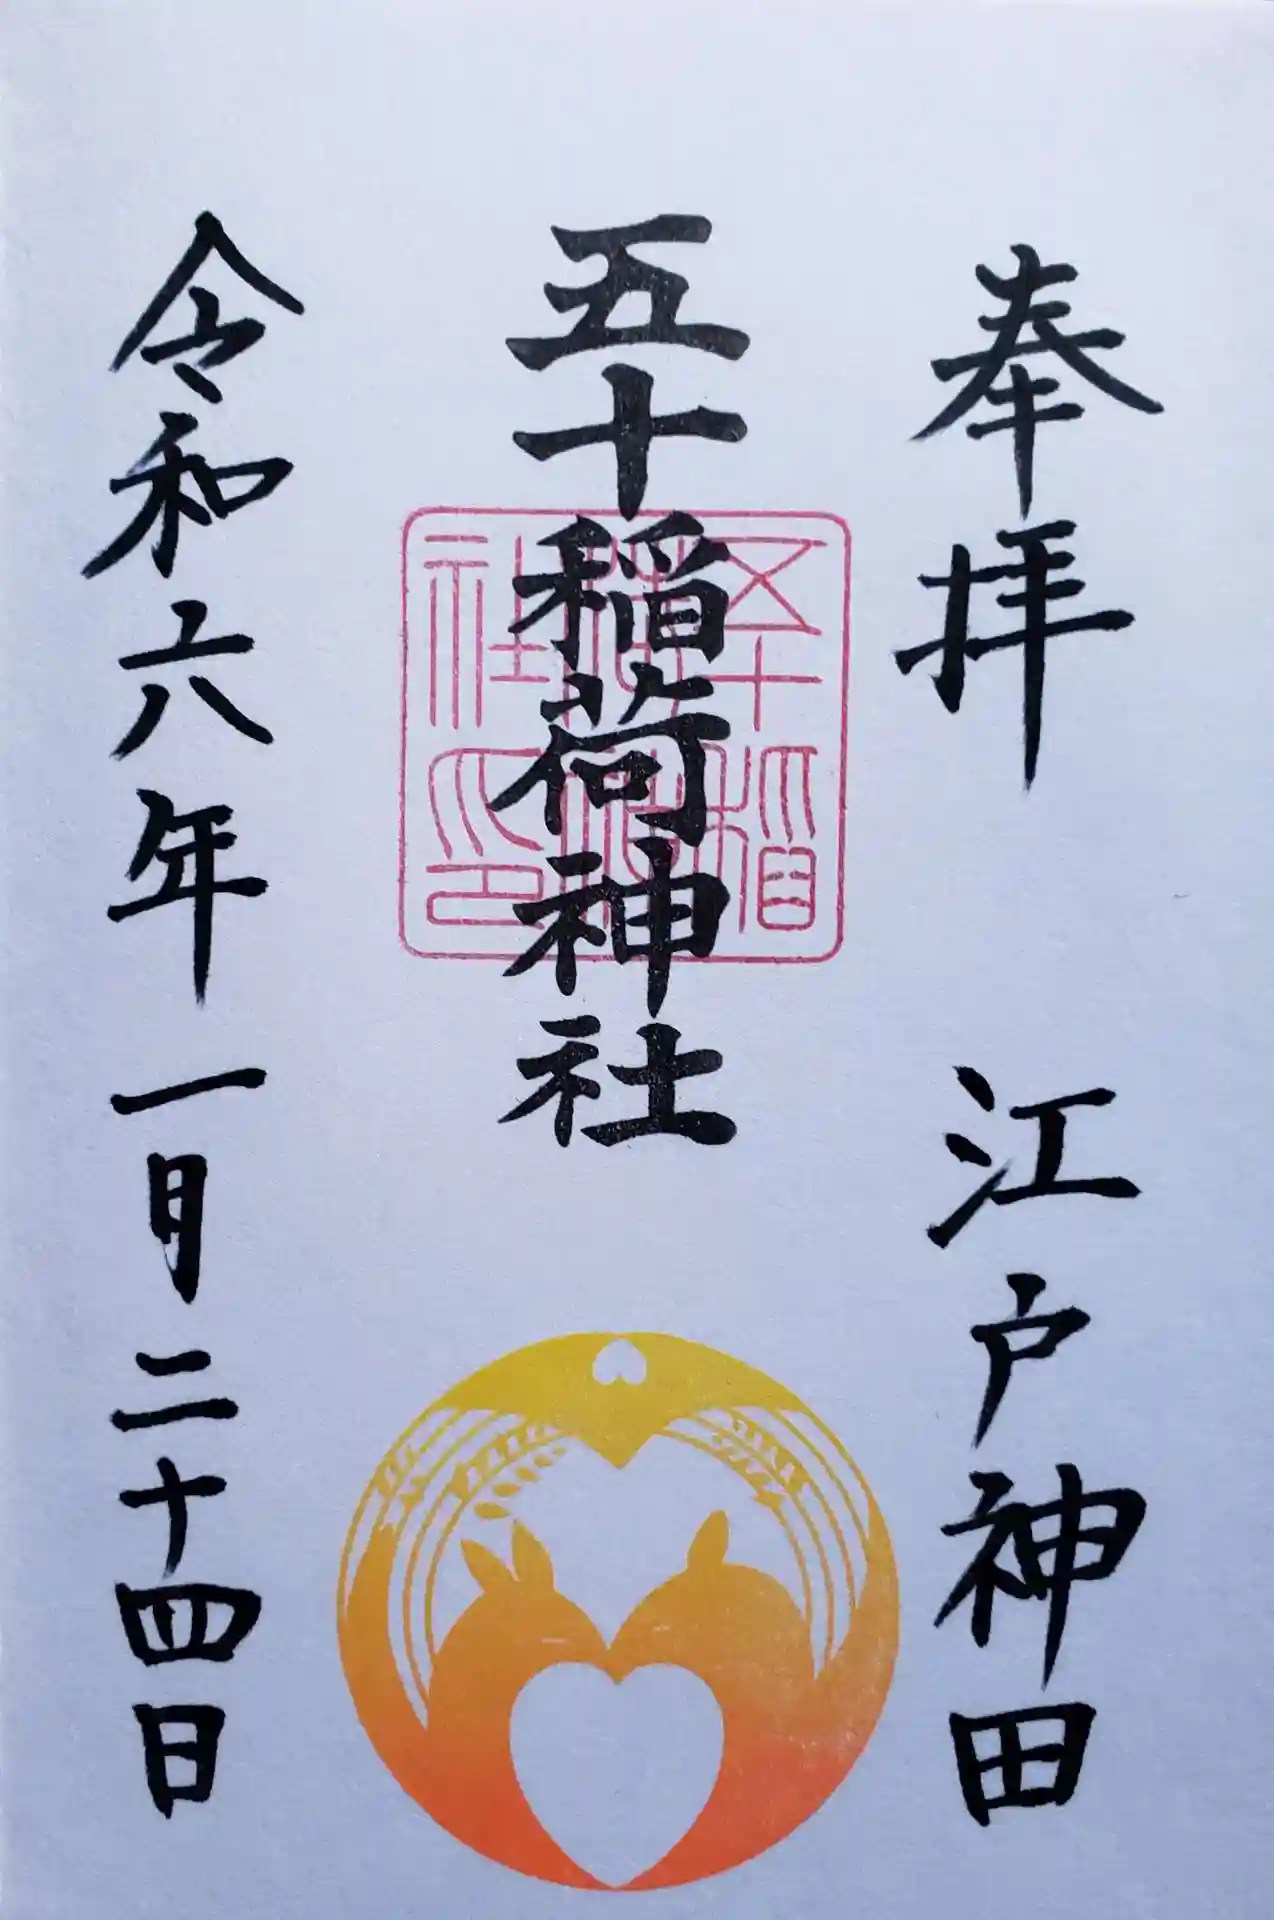 奉拝　江戸神田
五十稲荷神社
五十稲荷神社印
令和六年一月二十四日